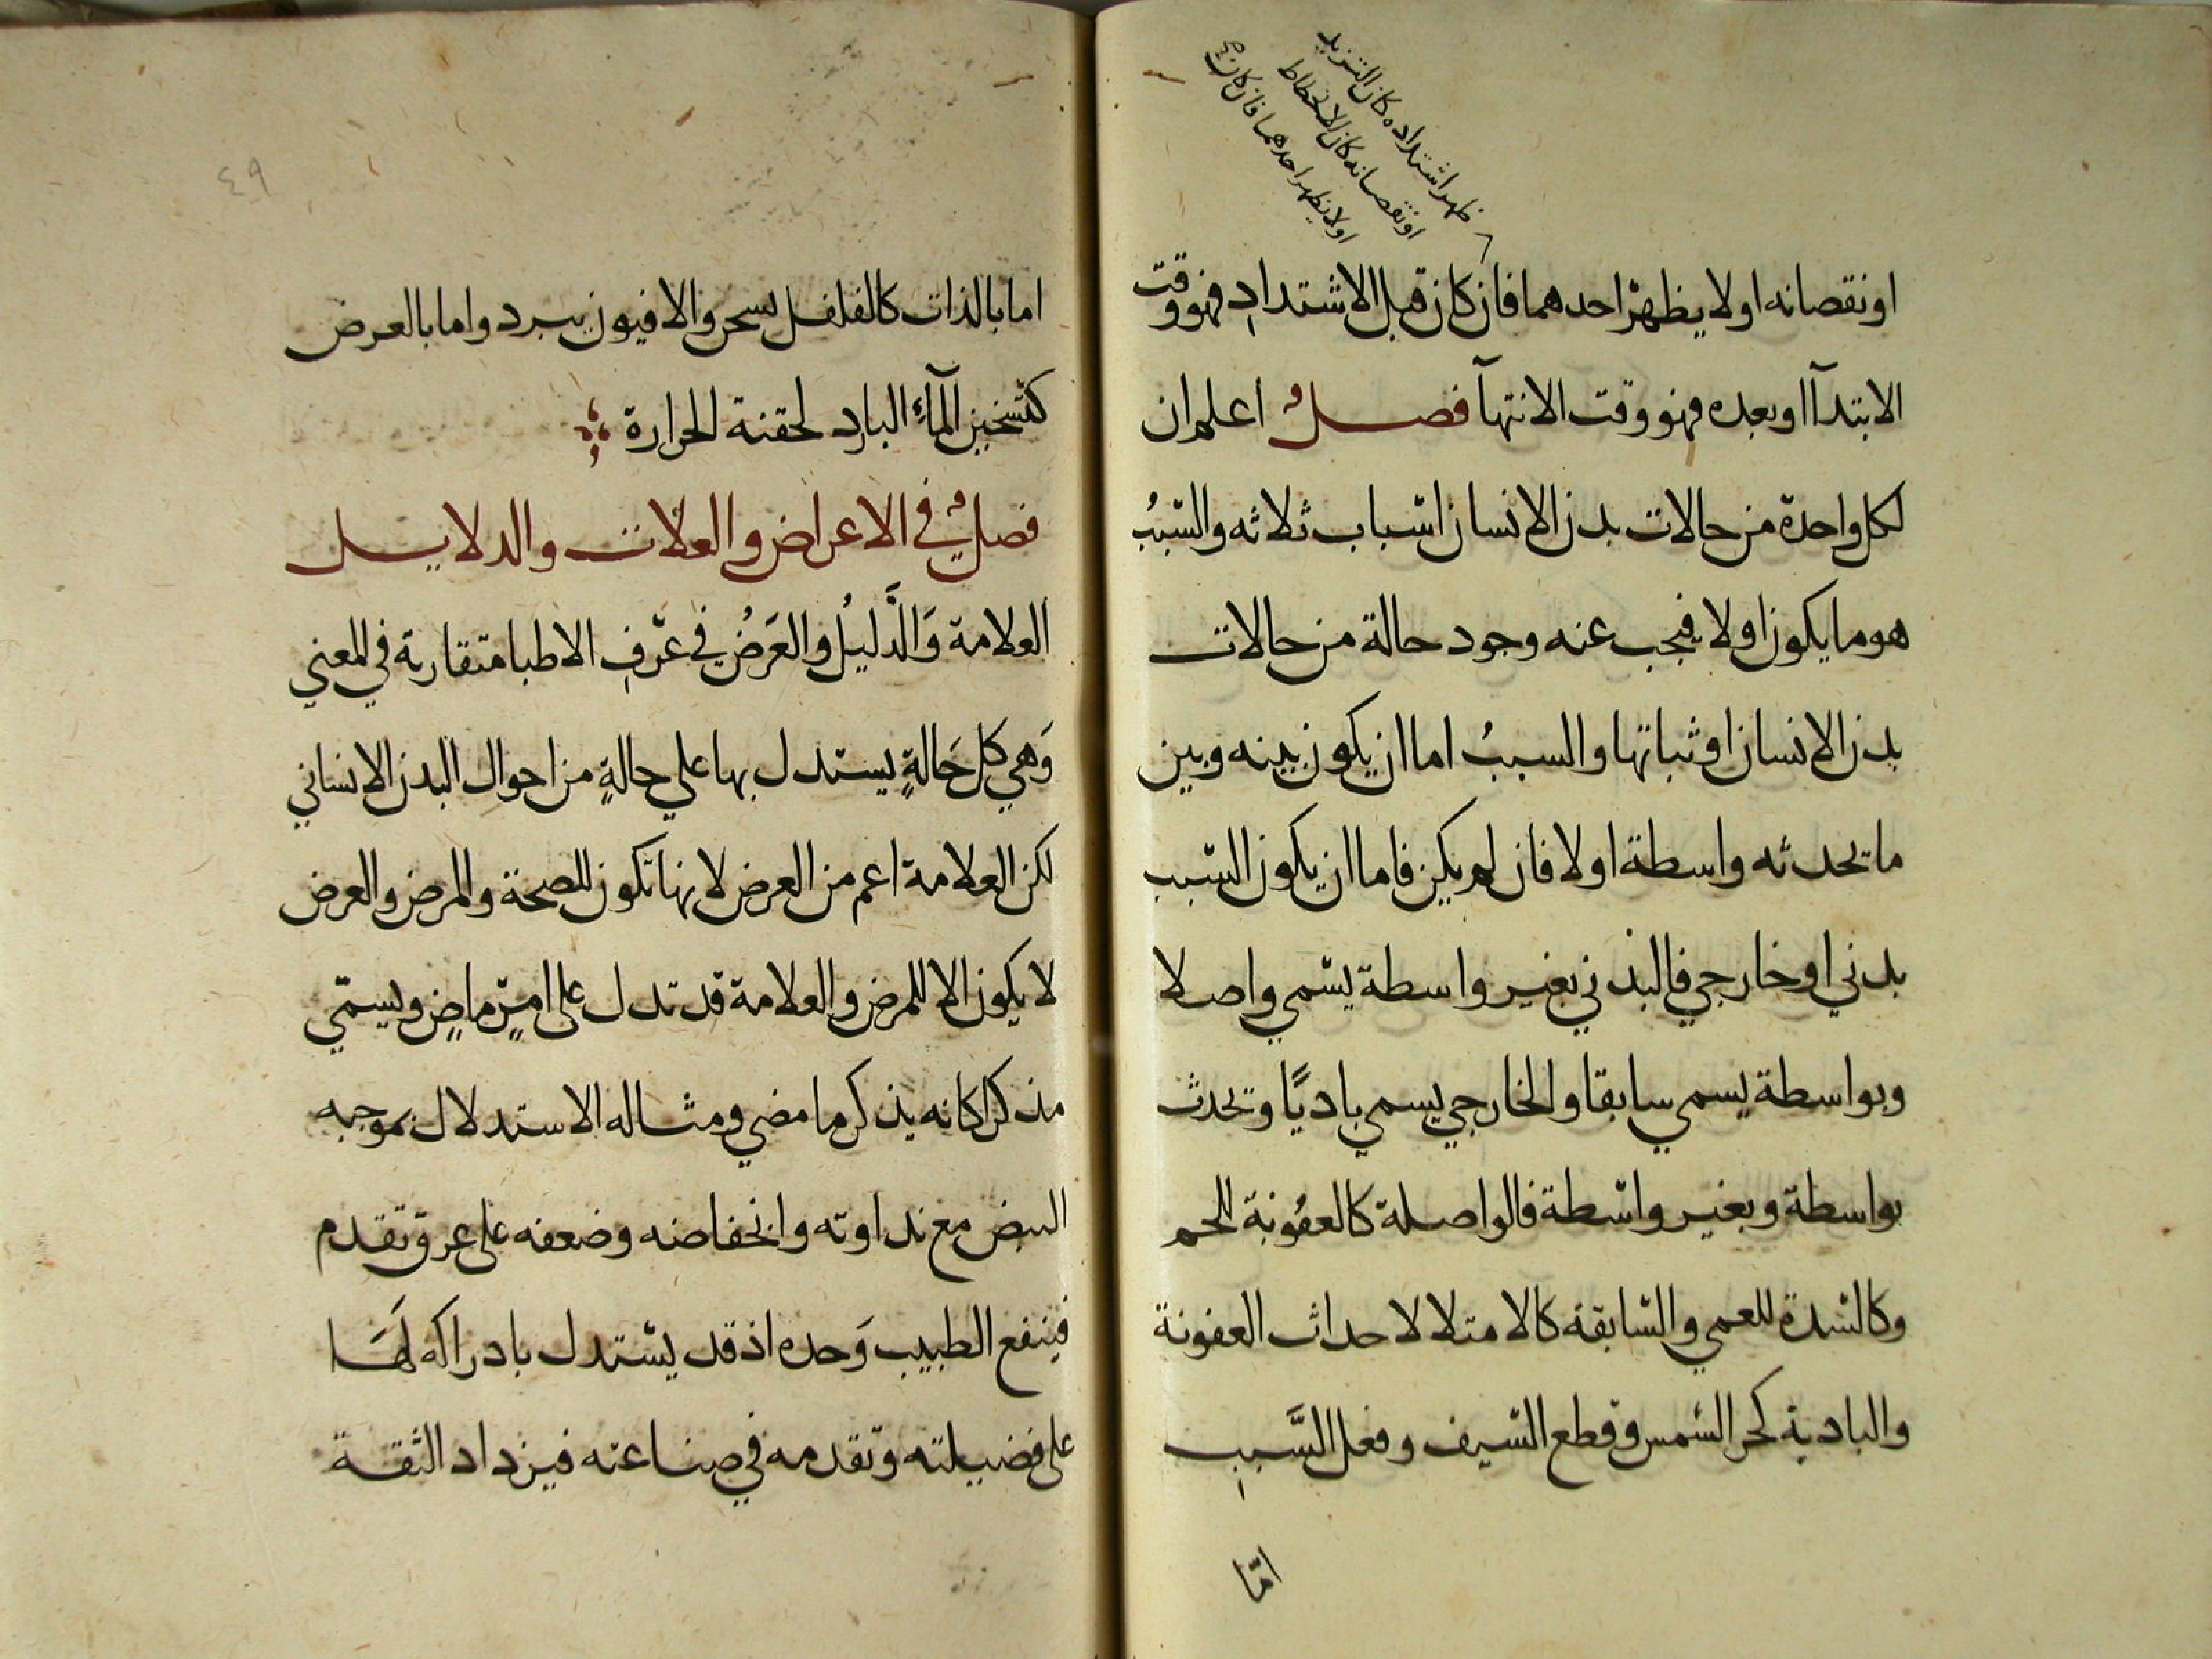 ظهر اشتداده كان التزيد
او نقصانه كان الانحطاط
اولا يظهر احدهما فان كان
او نقصانه اولا يظهر احدهما فان كان قبل الاشتداد فهو وقت
الابتدآ او بعده فهو وقت الانتهآ فصل اعلم ان
لكل واحدة من حالات بدن الانسان اسباب ثلاثه والسّببُ
هو ما يكون اولا فيجب عنه وجود حالة من حالات
بدن الانسان او ثباتها والسببُ اما ان يكون بينه وبين
ما يحدثه واسطة اولا فان لم يكن فاما ان يكون السّبب
بدني او خارجي فالبدني بغير واسطة يسّمي واصلا
وبواسطة يسمي سابقا والخارجي يسمي باديًا وتحدث
بواسطة وبغير واسّطة فالواصلة كالعفُونة للحمي
وكالسّدة للعمي والسّابقة كالامتلا لاحداث العفونة
والبادية كحر الشمس وقطع السّيف وفعل السَّبب
امّا
٤٩
اما بالذات كالفلفل يسخن والافيون يبرد واما بالعرض
كتسّخين المآء البارد لحقنة الحرارة
فصل في الاعراض والعلامات والدلايل
العلامة وَالدَّليلُ والعَرَضُ في عرّفِ الاطبا متقاربة في المعني
وَهي كل حَالةٍ يستدل بها علي حالةٍ من احوال البدن الانساني
لكن العلامة اعم من العرض لانها تكون للصحة والمرض والعرض
لا يكون الا للمرض والعلامة قد تدل على امرٍ ماضٍ ويسمّي
مذكرا كانه يذكر ما مضي ومثاله الاستدلال بموجبه
النبض مع نداوته وانخفاضه وضعفه على عرق تقدم
فينفع الطبيب وَحده اذ قد يسّتدل بادراكه لهَا
على فضيلته وتقدمه في صناعته فيزداد الثقة